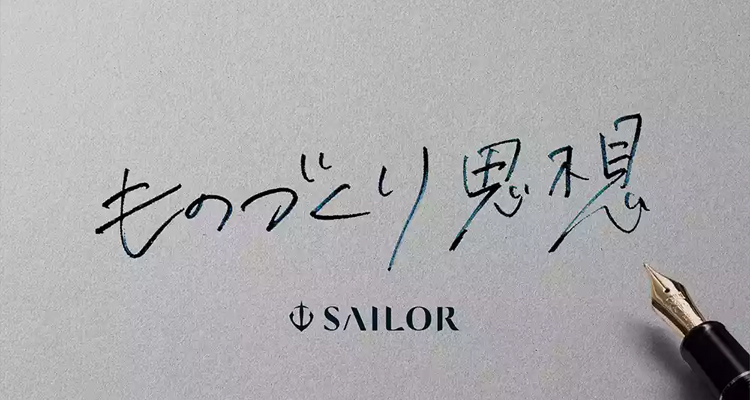 ものづくり思想
SAILOR